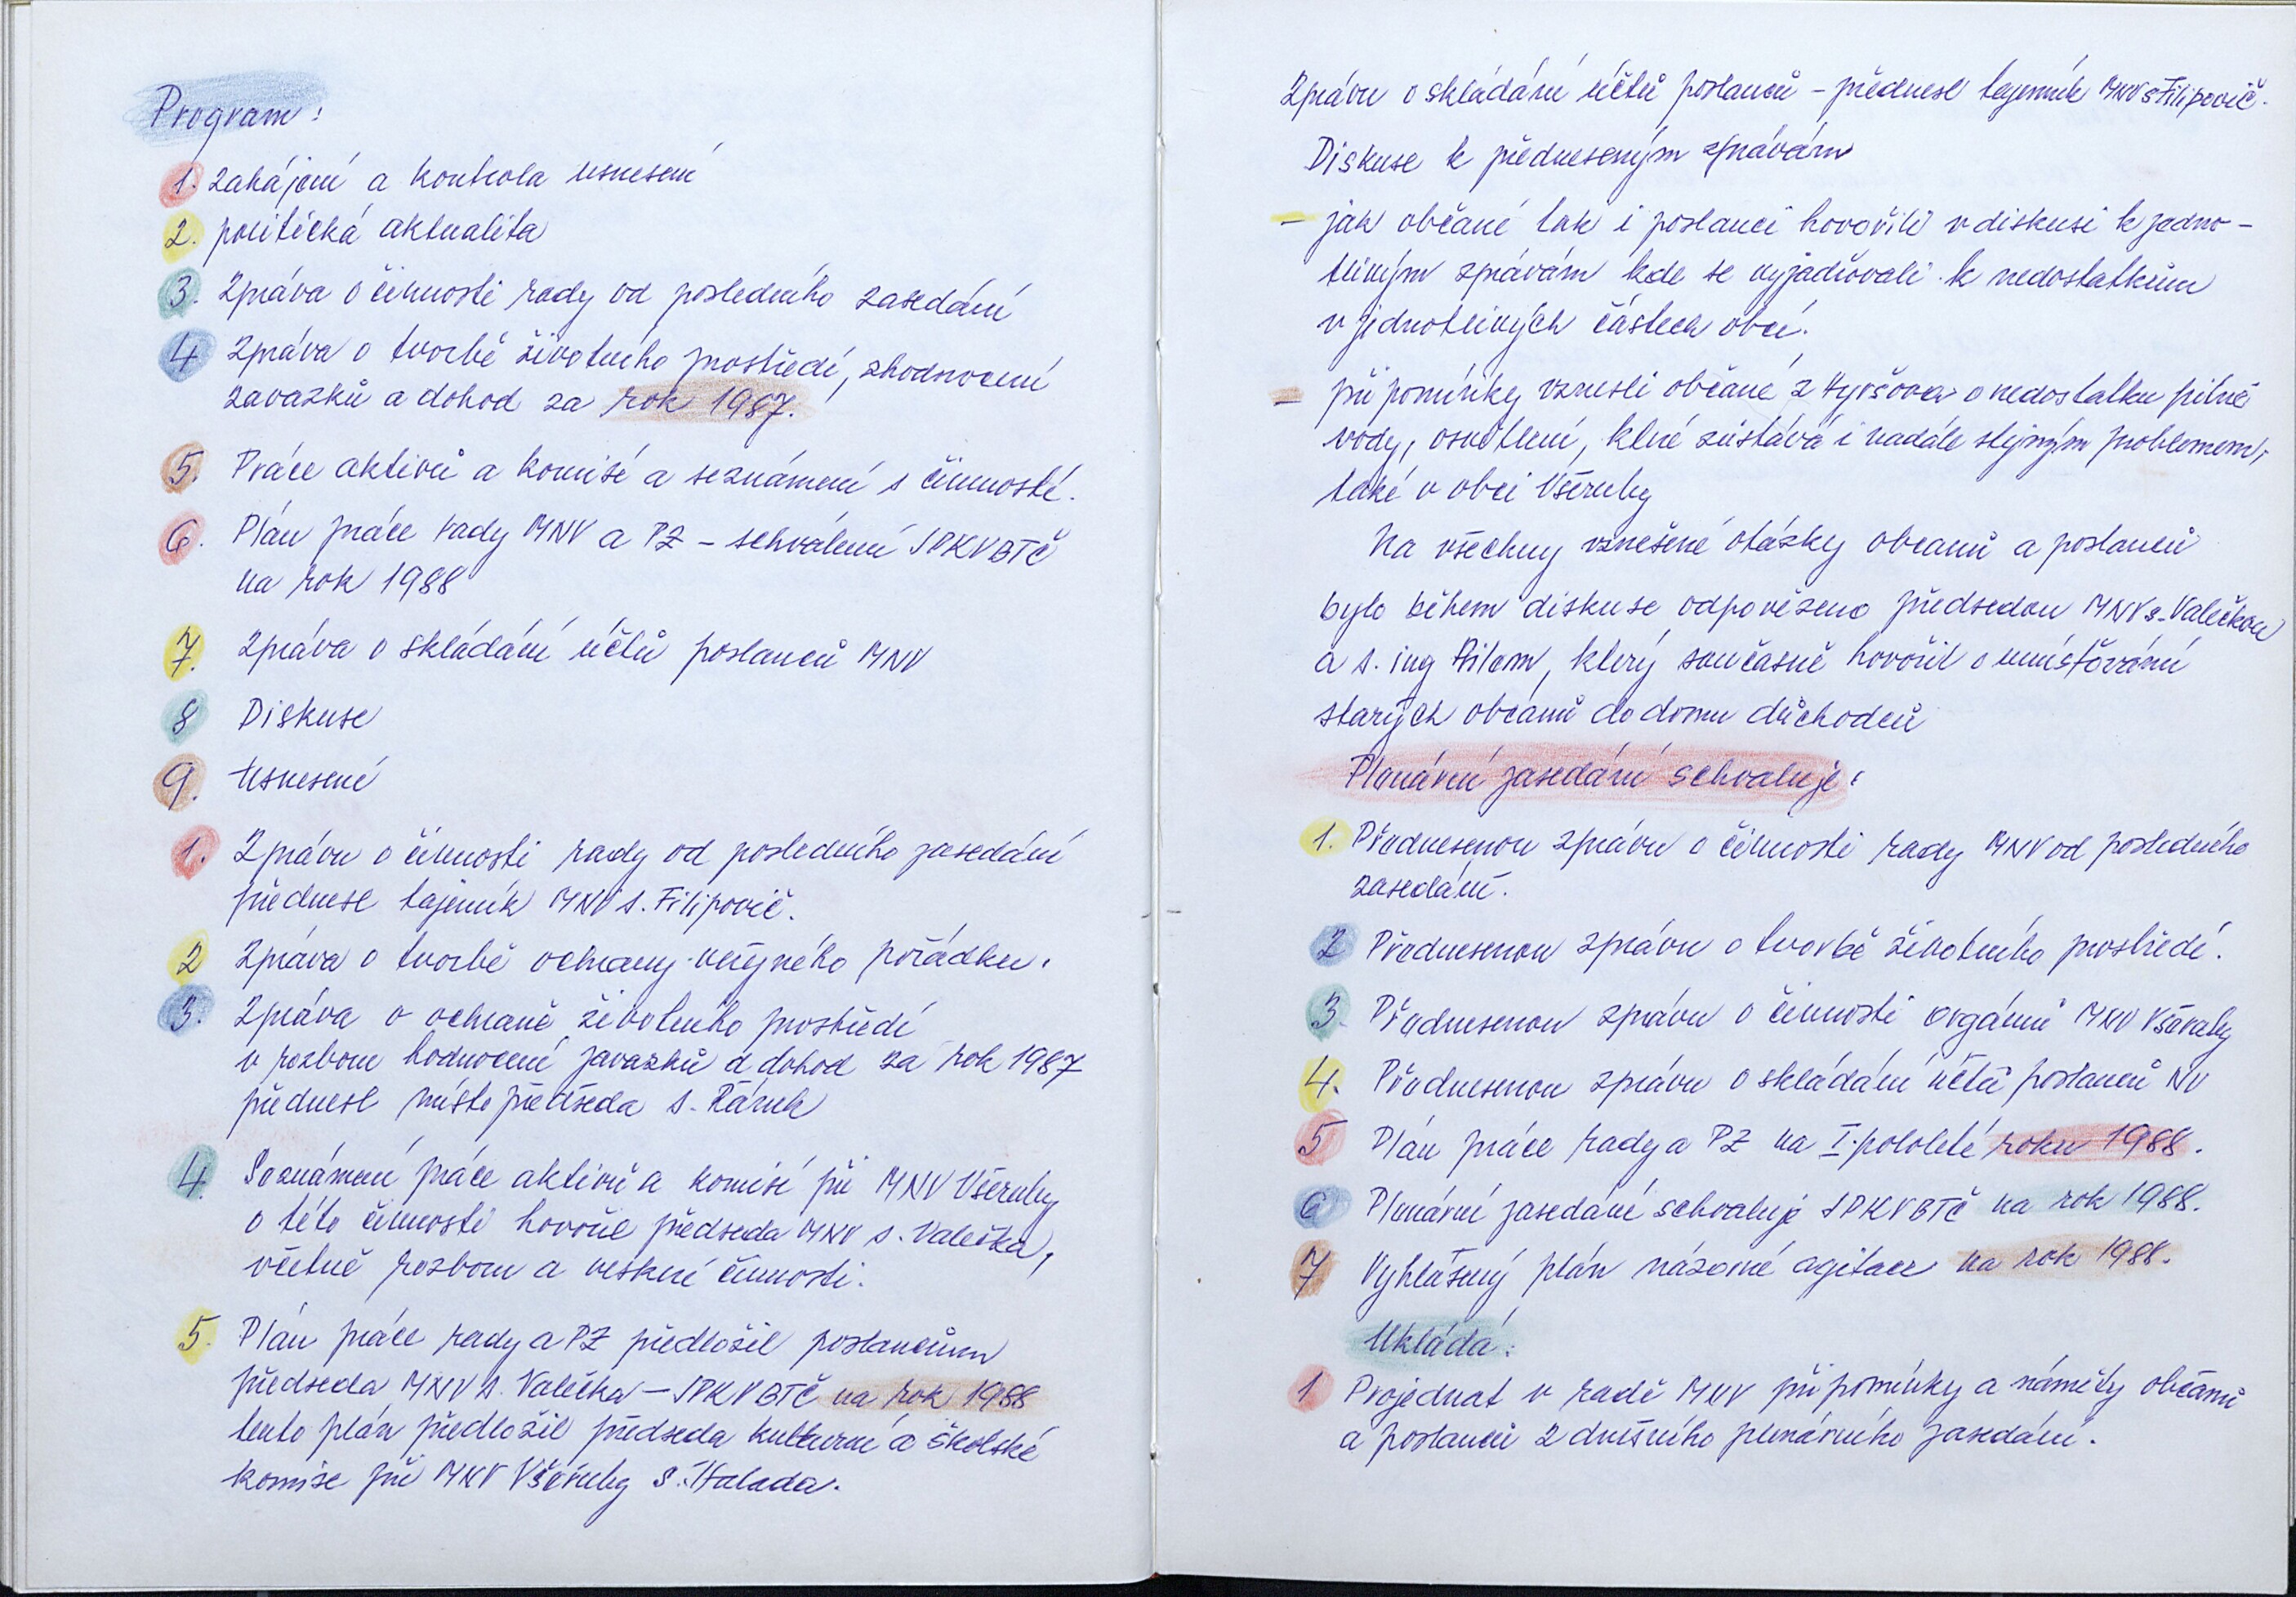 Program:
1. zahájení a kontrola usnesení
2. politická aktualita
3. Zpráva o činnosti rady od posledního zasedání
4 Zpráva o tvorbě životního prostředí, zhodnocení
zavazků a dohod za rok 1987.
5. Práce aktivů a komisí a seznámení s činností.
6. Plán práce rady MNV a PZ - schválení JPKVBTČ
na rok 1988
7. Zpráva o skládání účtů poslanců MNV
8 Diskuse
9. Usnesení
1. Zprávu o činnosti rady od posledního zasedání
přednesl tajemník MNV s. Filipovič.
2 Zpráva o tvorbě ochrany veřejného pořádku.
3. Zpráva o ochraně životního prostředí
v rozboru hodnocení zavazků a dohod za rok 1987
přednesl místopředseda s.
4. Seznámení práce aktivů a komisí při MNV Všeruby
o této činnosti hovořil předseda MNV s. Valečka,
včetně rozboru a veškeré činnosti.
5. Plán práce rady a PZ předložil poslancům
předseda MNV s. Valečka - JPKVBTČ na rok 1988
tento plán předložil předseda kulturní a školské
komise při MNV Všeruby s. Halada.
Zprávu o skládání účtů poslanců - přednesl tajemník MNV s Filipovič.
Diskuse k předneseným zprávám
- jak občané tak i poslanci hovořili v diskusi k jedno-
tlivým zprávám kde se vyjadřovali k nedostatkům
v jednotlivých částech obcí.
- připomínky vznesli občané z Hyršova o nedostatku pitné
vody, osvětlení, které zůstává i nadále stejným problemem,
také v obci Všeruby
Na všechny vznešené otázky občanů a poslanců
bylo během diskuse odpovězeno předsedou MNV s. Valečkou
a s. ing, který současně hovořil o umísťování
starých občanů do domu důchodců
Plenární zasedání schvaluje:
1. Přednesenou zprávu o činnosti rady MNV od posledního
zasedání.
2 Přednesenou zprávu o tvorbě životního prostředí.
3. Přednesenou zprávu o činnosti orgánů MNV Všeruby
4. Přednesenou zprávu o skládání účtů poslanců NV
5 Plán práce rady a PZ na I. pololetí roku 1988.
6 Plenární zasedání schvaluje JPKVBTČ na rok 1988.
7 Vyhlášený plán názorné agitace na rok 1988.
Ukládá:
1 Projednat v radě MNV připomínky a náměty občanů
a poslanců z dnešního plenárního zasedání.